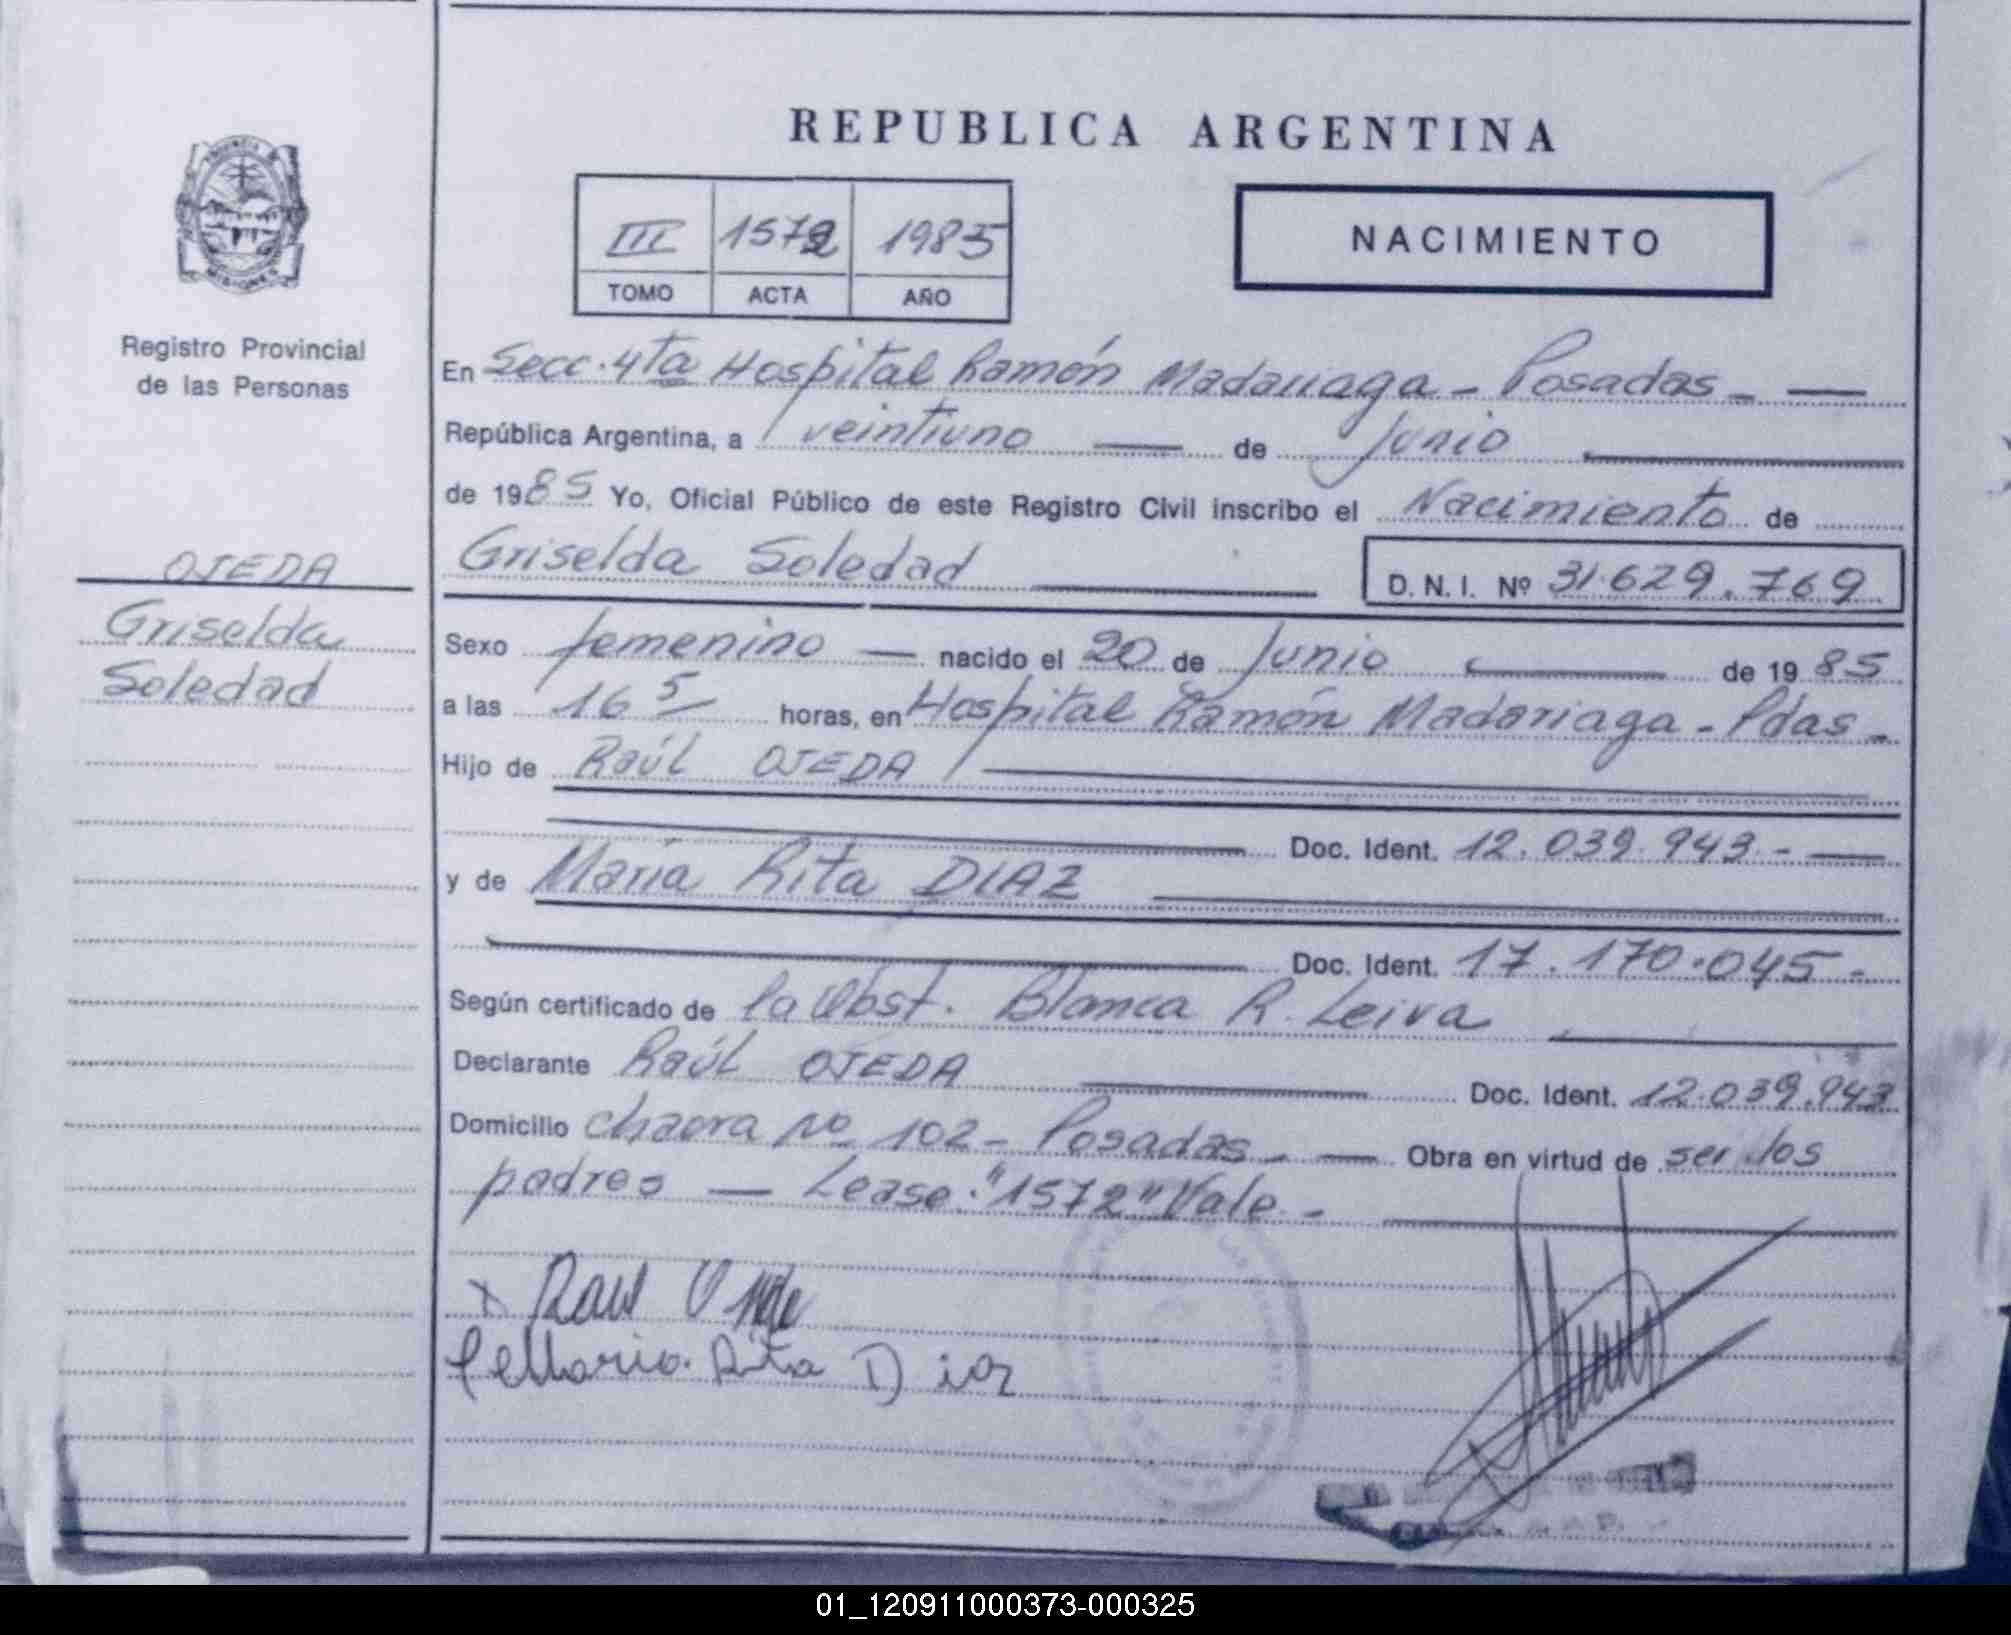 REPUBLICA ARGENTINA
III 1572 1985
TOMO ACTA AÑO
NACIMIENTO
MISIONES
Registro Provincial
de las Personas
OJEDA
Griselda
Soledad
En Secc. 4ta Hospital Ramón Madariaga - Posadas -
República Argentina, a veintiuno de Junio
de 1985 Yo, Oficial Público de este Registro Civil inscribo el Nacimiento de
Griselda Soledad D. N. I. Nº 31.629.769
Sexo femenino nacido el 20 de Junio de 1985
a las 16 5 horas, en Hospital Ramón Madariaga - Pdas -
Hijo de Raúl OJEDA
Doc. Ident. 12.039.943 -
y de María Rita DIAZ
Doc. Ident. 17.170.045 -
Según certificado de la Obst. Blanca R. Leiva
Declarante Raúl OJEDA Doc. Ident. 12.039.943
Domicilio chacra Nº 102 - Posadas - Obra en virtud de ser los
padres — Lease: "1572" Vale -
x Raul
Maria Rita Diaz
01_120911000373-000325